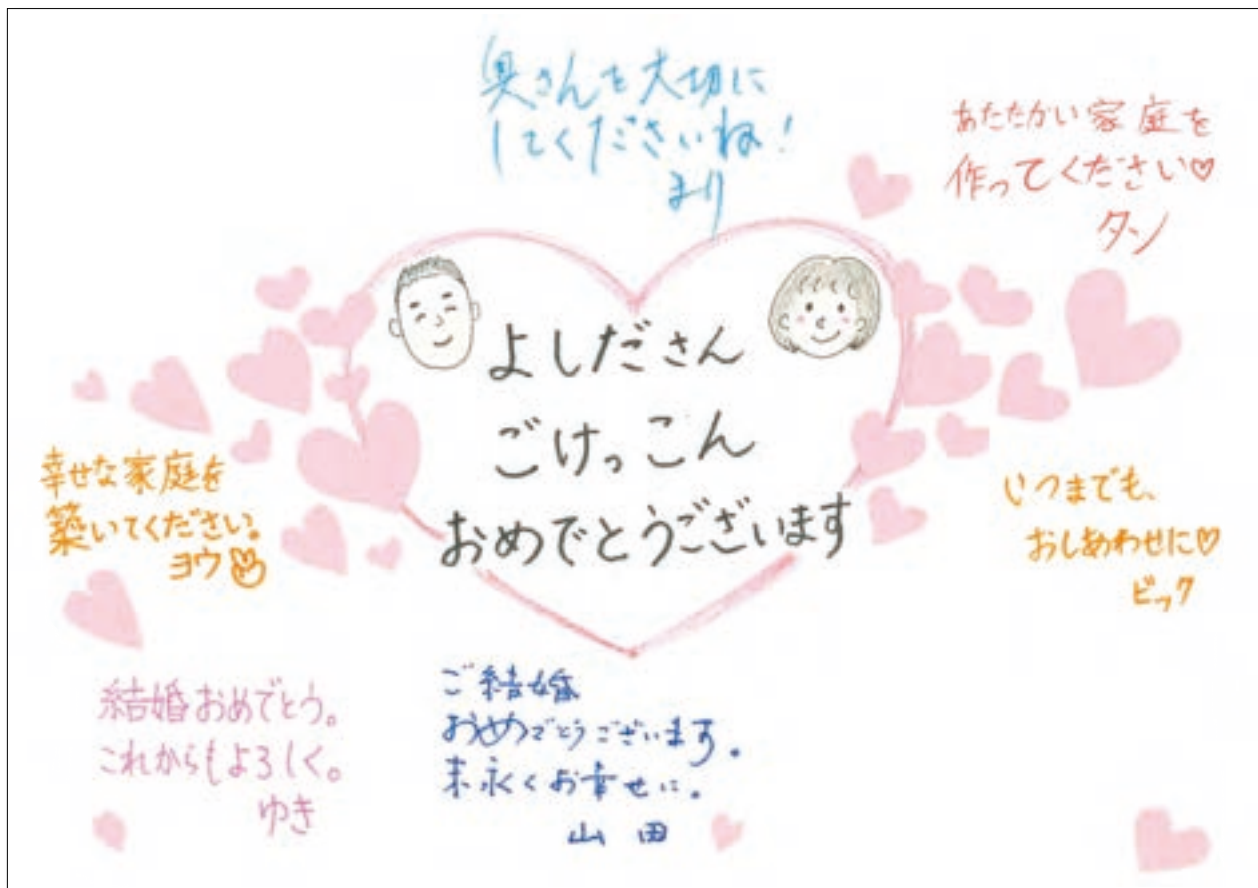 奥さんを大切に
してくださいね！
まり
あたたかい家庭を
作ってください♡
タン
よしださん
ごけっこん
おめでとうございます
幸せな家庭を
築いてください。
ヨウ
いつまでも、
おしあわせに♡
ビック
結婚おめでとう。
これからもよろしく。
ゆき
ご結婚
おめでとうございます。
末永くお幸せに。
山田